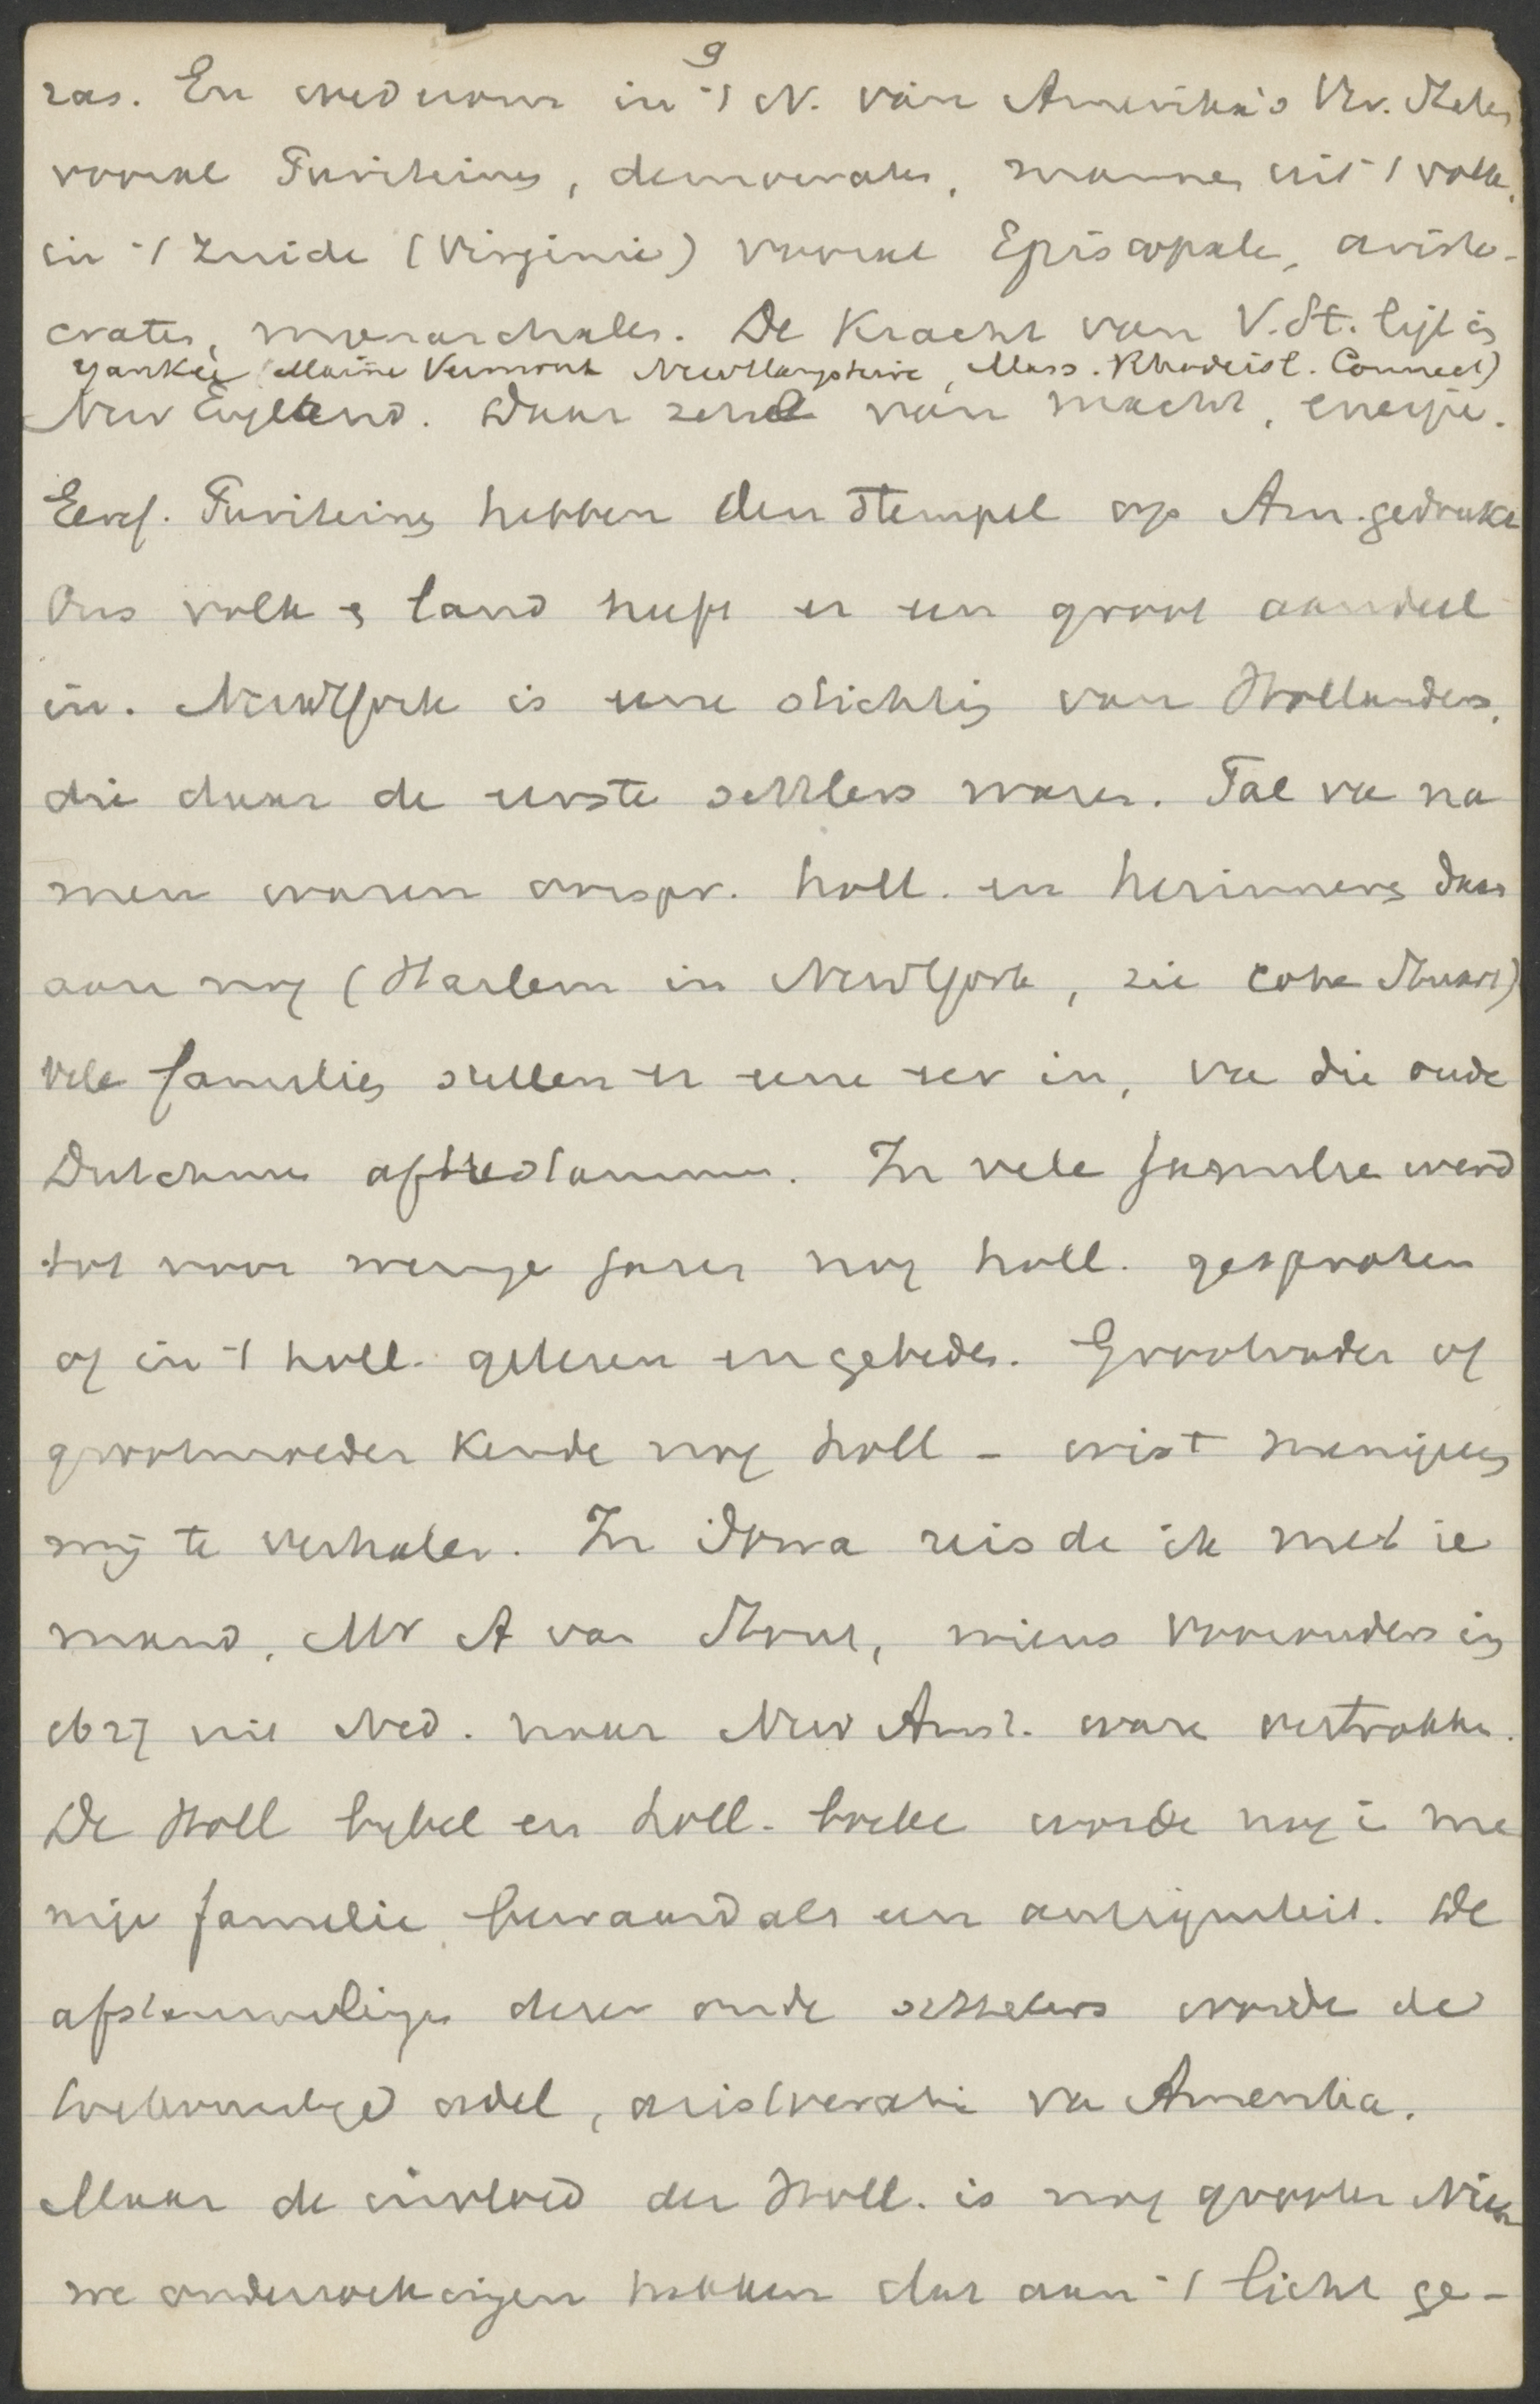 9
ras. En wederom in 't N. van Amerika's Ver. Staten
vooral Puriteinen, democraten, mannen uit 't volk,
in 't Zuide (Virginie) vooral Episcopale, aristo-
craten, monarchalen. De Kracht van V.St. ligt in
Yankee (Maine Vermont NewHampshire, Mass. Rhodeisl. Connect)
New England. Daar zetel van macht, energie.
Eerst. Puriteinen hebben den stempel op Am. gedrukt
Ons volk en land heeft er een groot aandeel
in. NewYork is eene stichting van Hollanders,
die daar de eerste settlers waren. Tal van na
men waren oorspr. holl. en herinneren daar
aan nog (Harlem in NewYork, zie Cohen Stuart)
Vele families stellen er eene eer in, van die oude
Dutchmen af te stammen. In vele familie werd
tot voor weinige jaren nog holl. gesproken
of in 't holl. gelezen en gebeden. Grootvader of
grootmoeder kende nog holl - wist menigeen
mij te verhalen. In Iowa reisde ik met ie
mand, Mr A van Stout, wiens voorouders in
1627 uit Ned. naar New Amst. ware vertrokken.
De Holl bybel en holl. boeken worde nog i me
nige familie bewaard als een antiquiteit. De
afstammelingen dezer oude settelers worde de
toekomstige adel, aristocratie van Amerika.
Maar de invloed der Holl. is nog grooter Nieu
we onderzoekingen hebben dat aan 't licht ge-